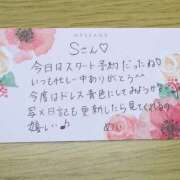 MESSAGE
Sさん♡
今日はスタート予約だったね♪
いつも忙しい中ありがとう
今度はドレス青色にしてみようかな?
写メ日記も更新したら見てくれるの
嬉しい♪